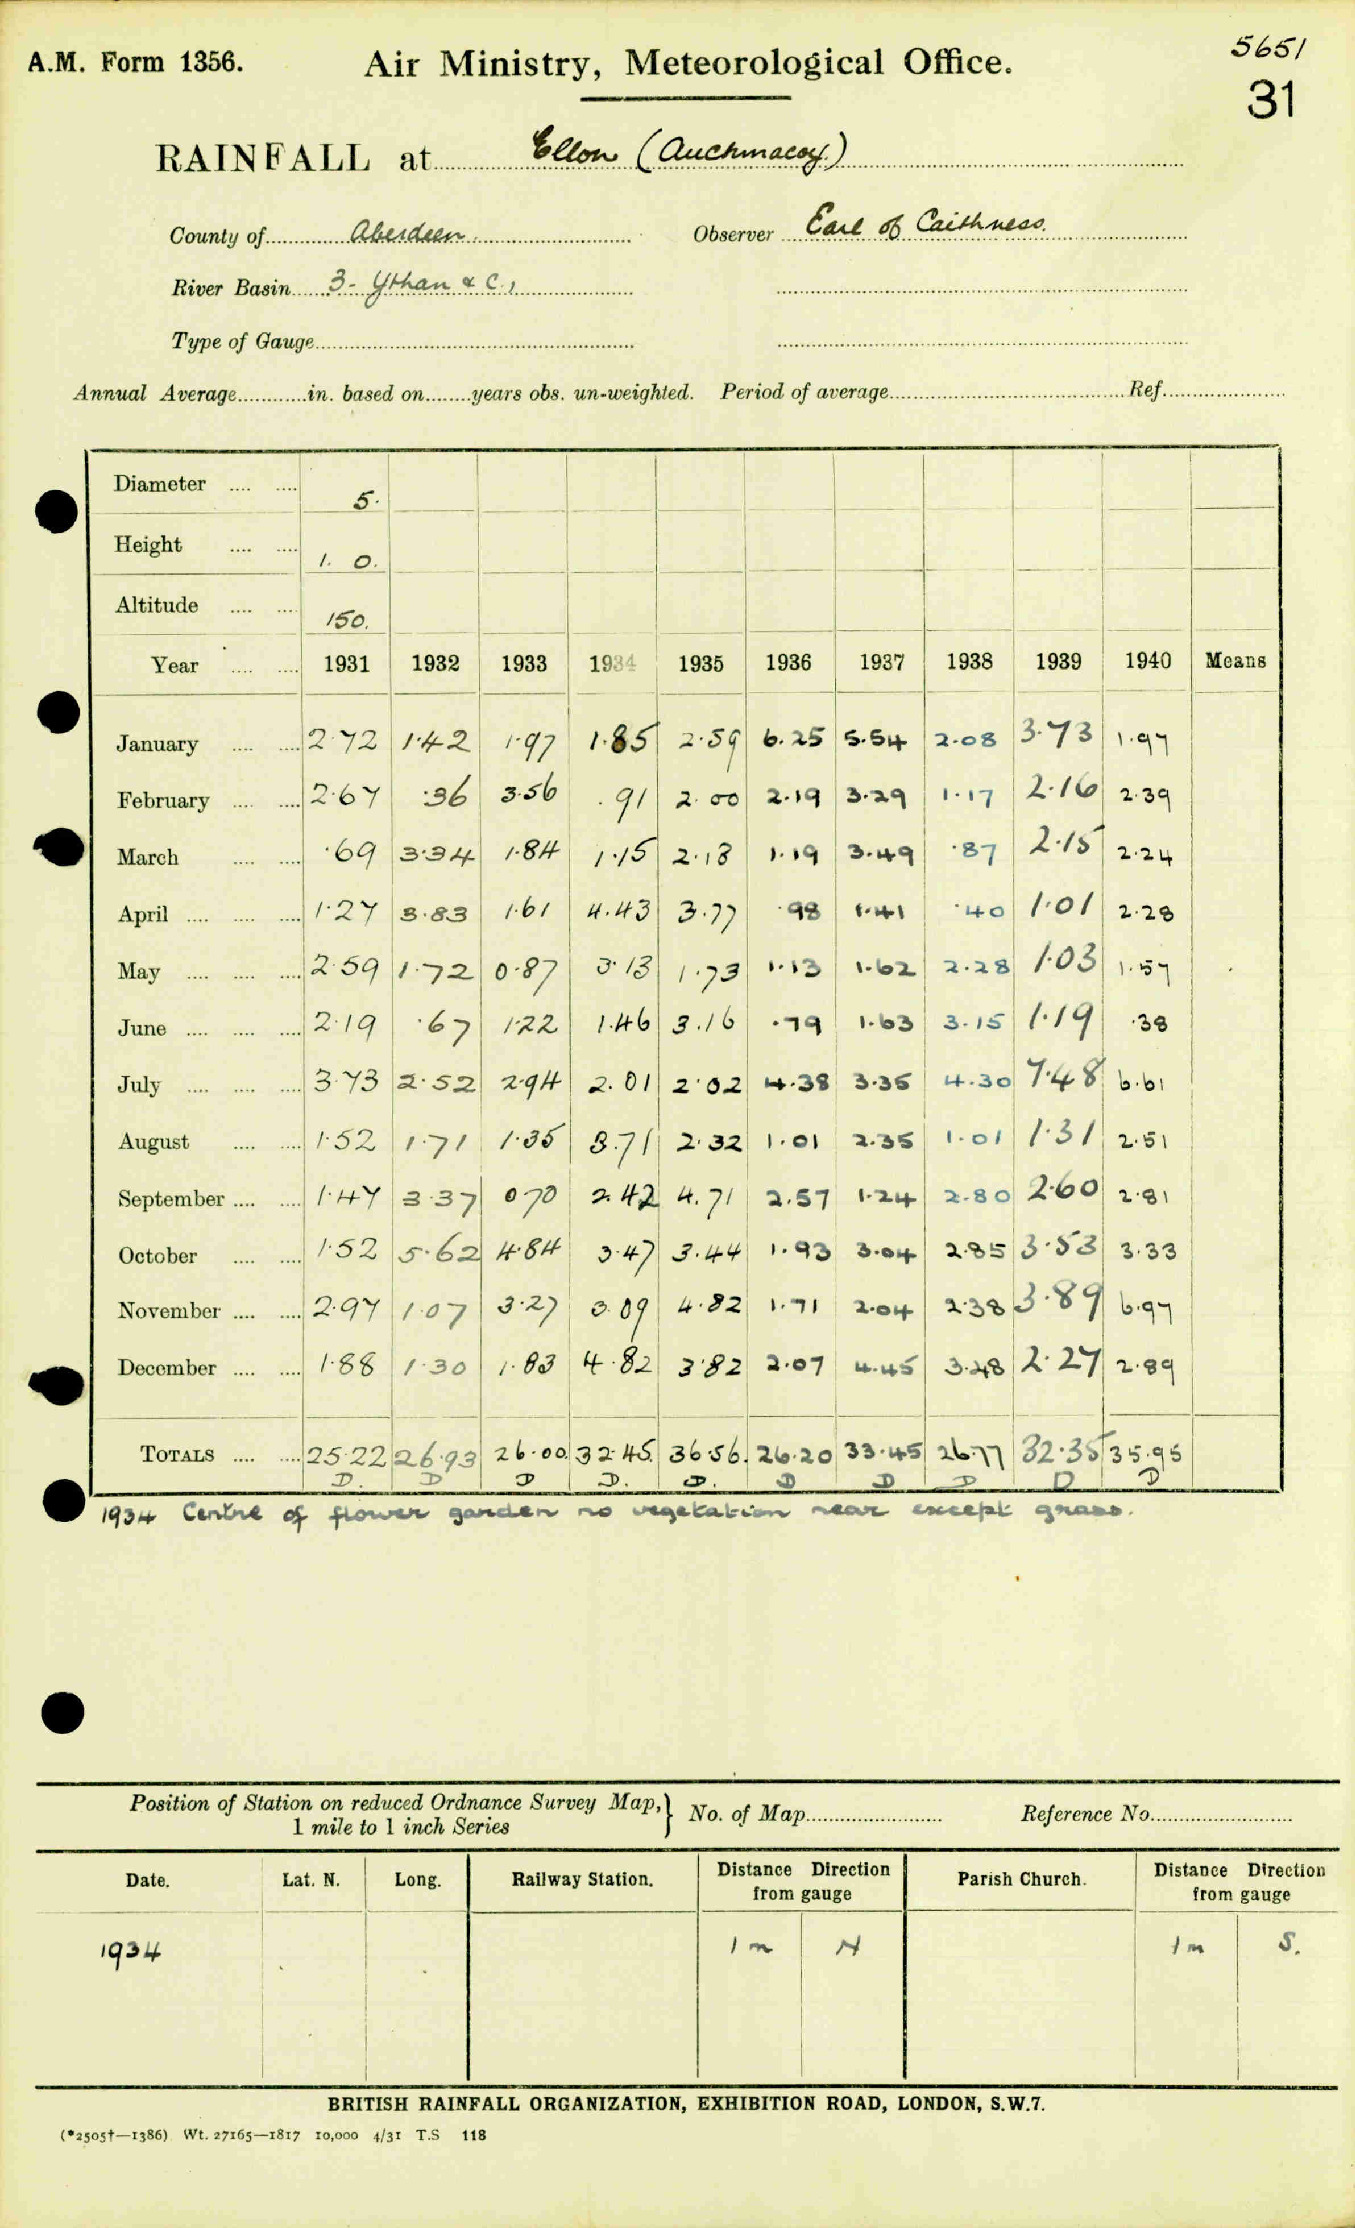 A.M. Form 1356.
Air Ministry, Meteorological Office.
5651
31
RAINFALL at Ellon (Auchmacoy.)
County of Aberdeen. Observer Earl of Caithness.
River Basin 3- Ythan & C.,
Type of Gauge
Annual Average in. based on years obs. un-weighted. Period of average Ref.
Diameter 5.
Height 1. 0.
Altitude 150.
Year 1931 1932 1933 1934 1935 1936 1937 1938 1939 1940 Means
January 2.72 1.42 1.97 1.85 2.59 6.25 5.54 2.08 3.73 1.97
February 2.67 .36 3.56 .91 2.00 2.19 3.29 1.17 2.16 2.39
March .69 3.34 1.84 1.15 2.18 1.19 3.49 .87 2.15 2.24
April 1.27 3.83 1.61 4.43 3.77 .98 1.41 .40 1.01 2.28
May 2.59 1.72 0.87 3.13 1.73 1.13 1.62 2.28 1.03 1.57
June 2.19 .67 1.22 1.46 3.16 .79 1.63 3.15 1.19 .38
July 3.73 2.52 2.94 2.01 2.02 4.38 3.35 4.30 7.48 6.61
August 1.52 1.71 1.35 3.71 2.32 1.01 2.35 1.01 1.31 2.51
September 1.47 3.37 0.70 2.42 4.71 2.57 1.24 2.80 2.60 2.81
October 1.52 5.62 4.84 3.47 3.44 1.93 3.04 2.85 3.53 3.33
November 2.97 1.07 3.27 3.09 4.82 1.71 2.04 2.38 3.89 6.97
December 1.88 1.30 1.83 4.82 3.82 2.07 4.45 3.48 2.27 2.89
TOTALS 25.22 26.93 26.00. 32.45. 36.56. 26.20 33.45 26.77 32.35 35.95
D. D D D. D. D D D D D
1934 Centre of flower garden no vegetation near except grass.
Position of Station on reduced Ordnance Survey Map, } No. of Map Reference No.
1 mile to 1 inch Series
Date. Lat. N. Long. Railway Station. Distance Direction from gauge Parish Church. Distance Direction from gauge
1934 1 m N 1 m S.
BRITISH RAINFALL ORGANIZATION, EXHIBITION ROAD, LONDON, S.W.7.
(*2505†—1386) Wt. 27165—1817 10,000 4/31 T.S 118